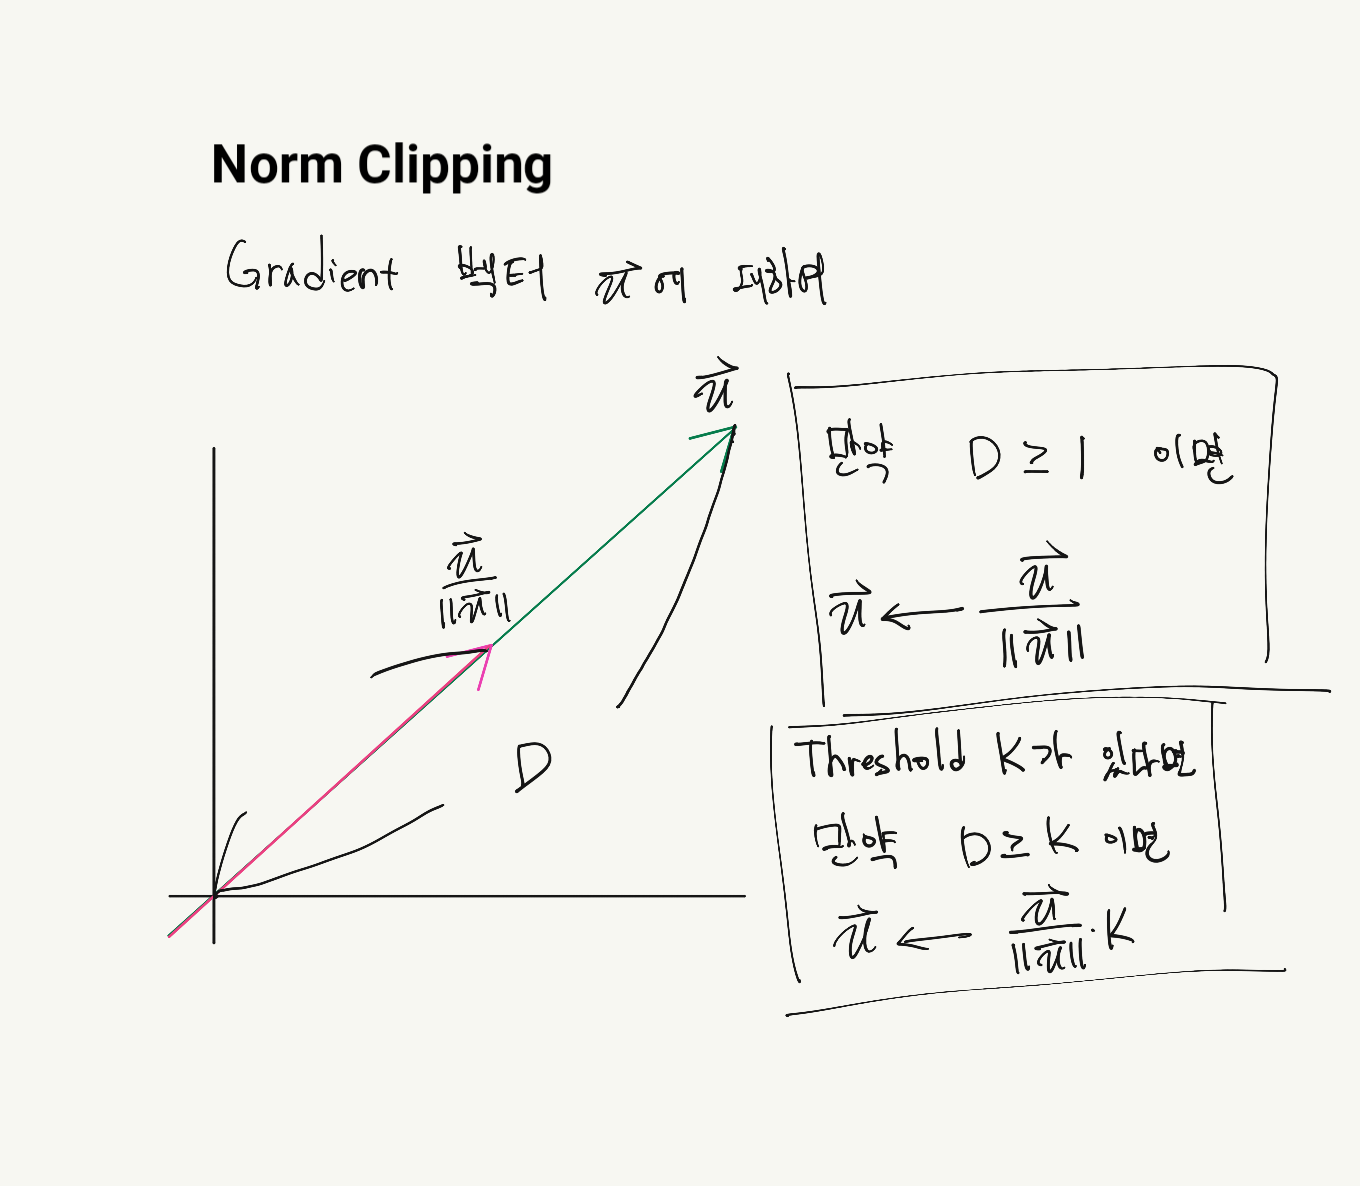 Norm Clipping
Gradient 벡터 u⃗ 에 대하여
u⃗
u⃗ / ||u⃗||
D
만약 D ≥ 1 이면
u⃗ ← u⃗ / ||u⃗||
Threshold K가 있다면
만약 D ≥ K 이면
u⃗ ← u⃗ / ||u⃗|| · K